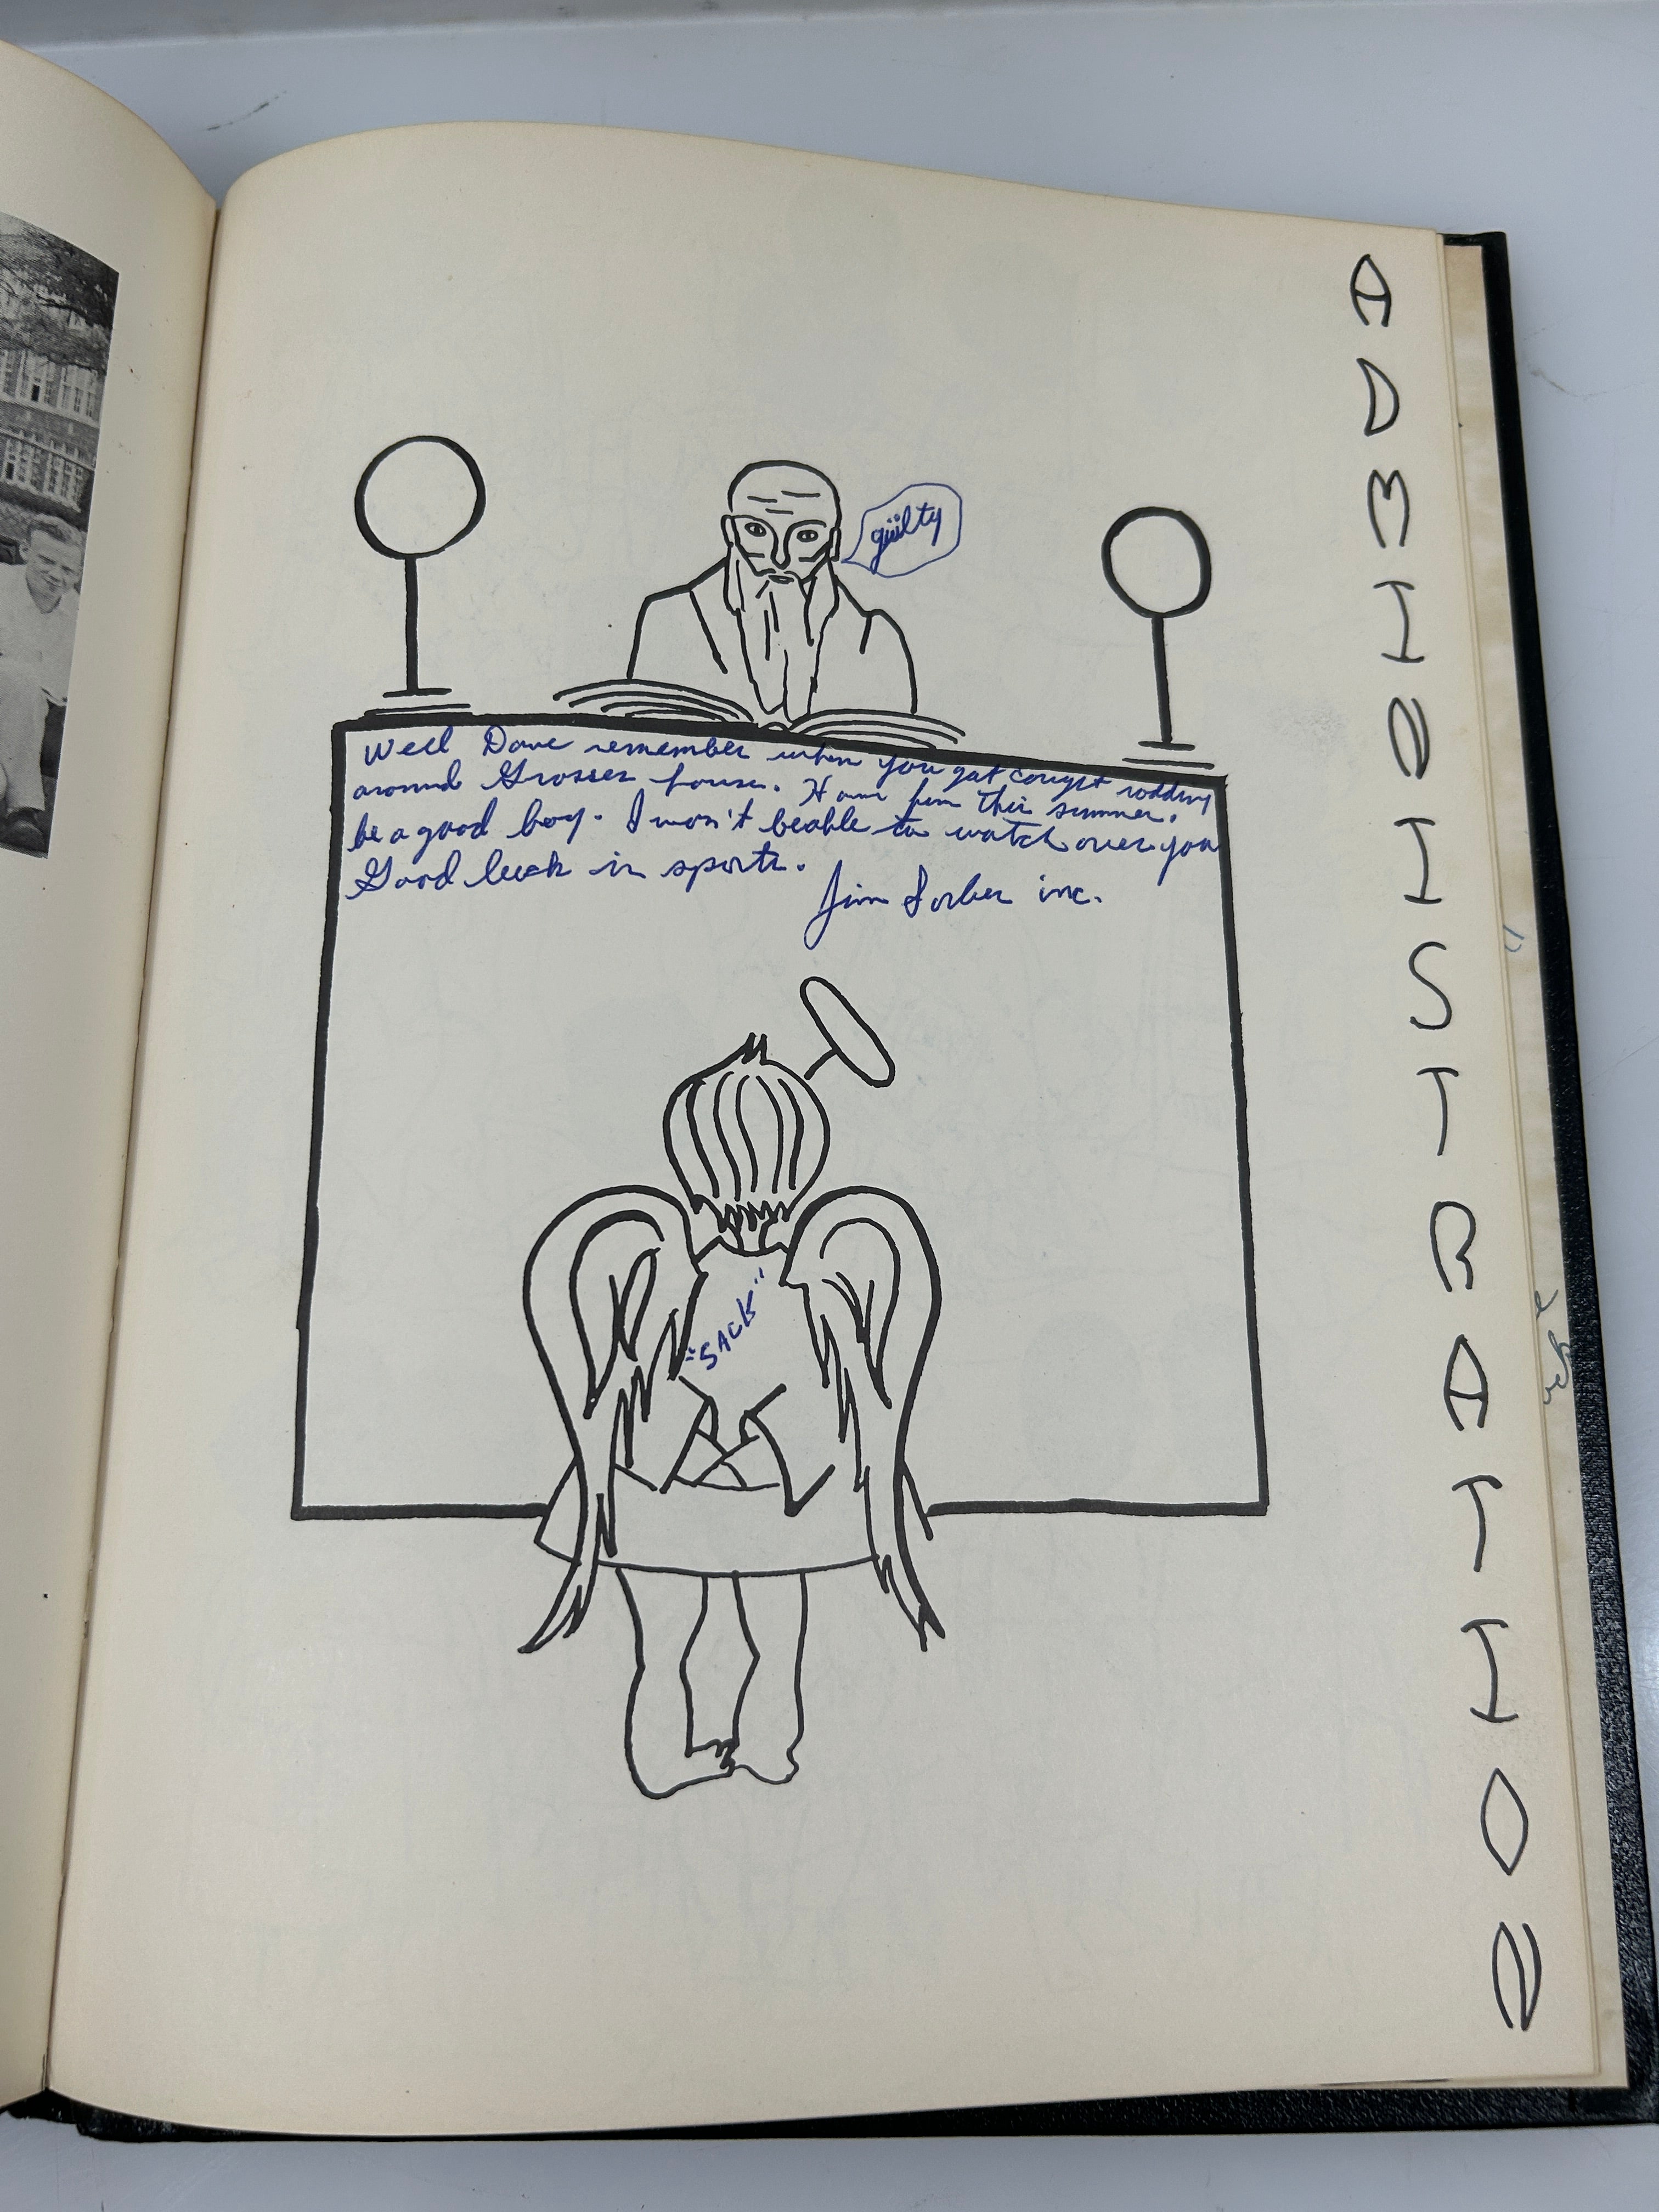 ADMINISTRATION
guilty
Well Dave remember when you got cought rodding
around Grosses house. Have fun this summer.
be a good boy. I won't beable to watch over you
Good luck in sports.
Jim inc.
"SACK"